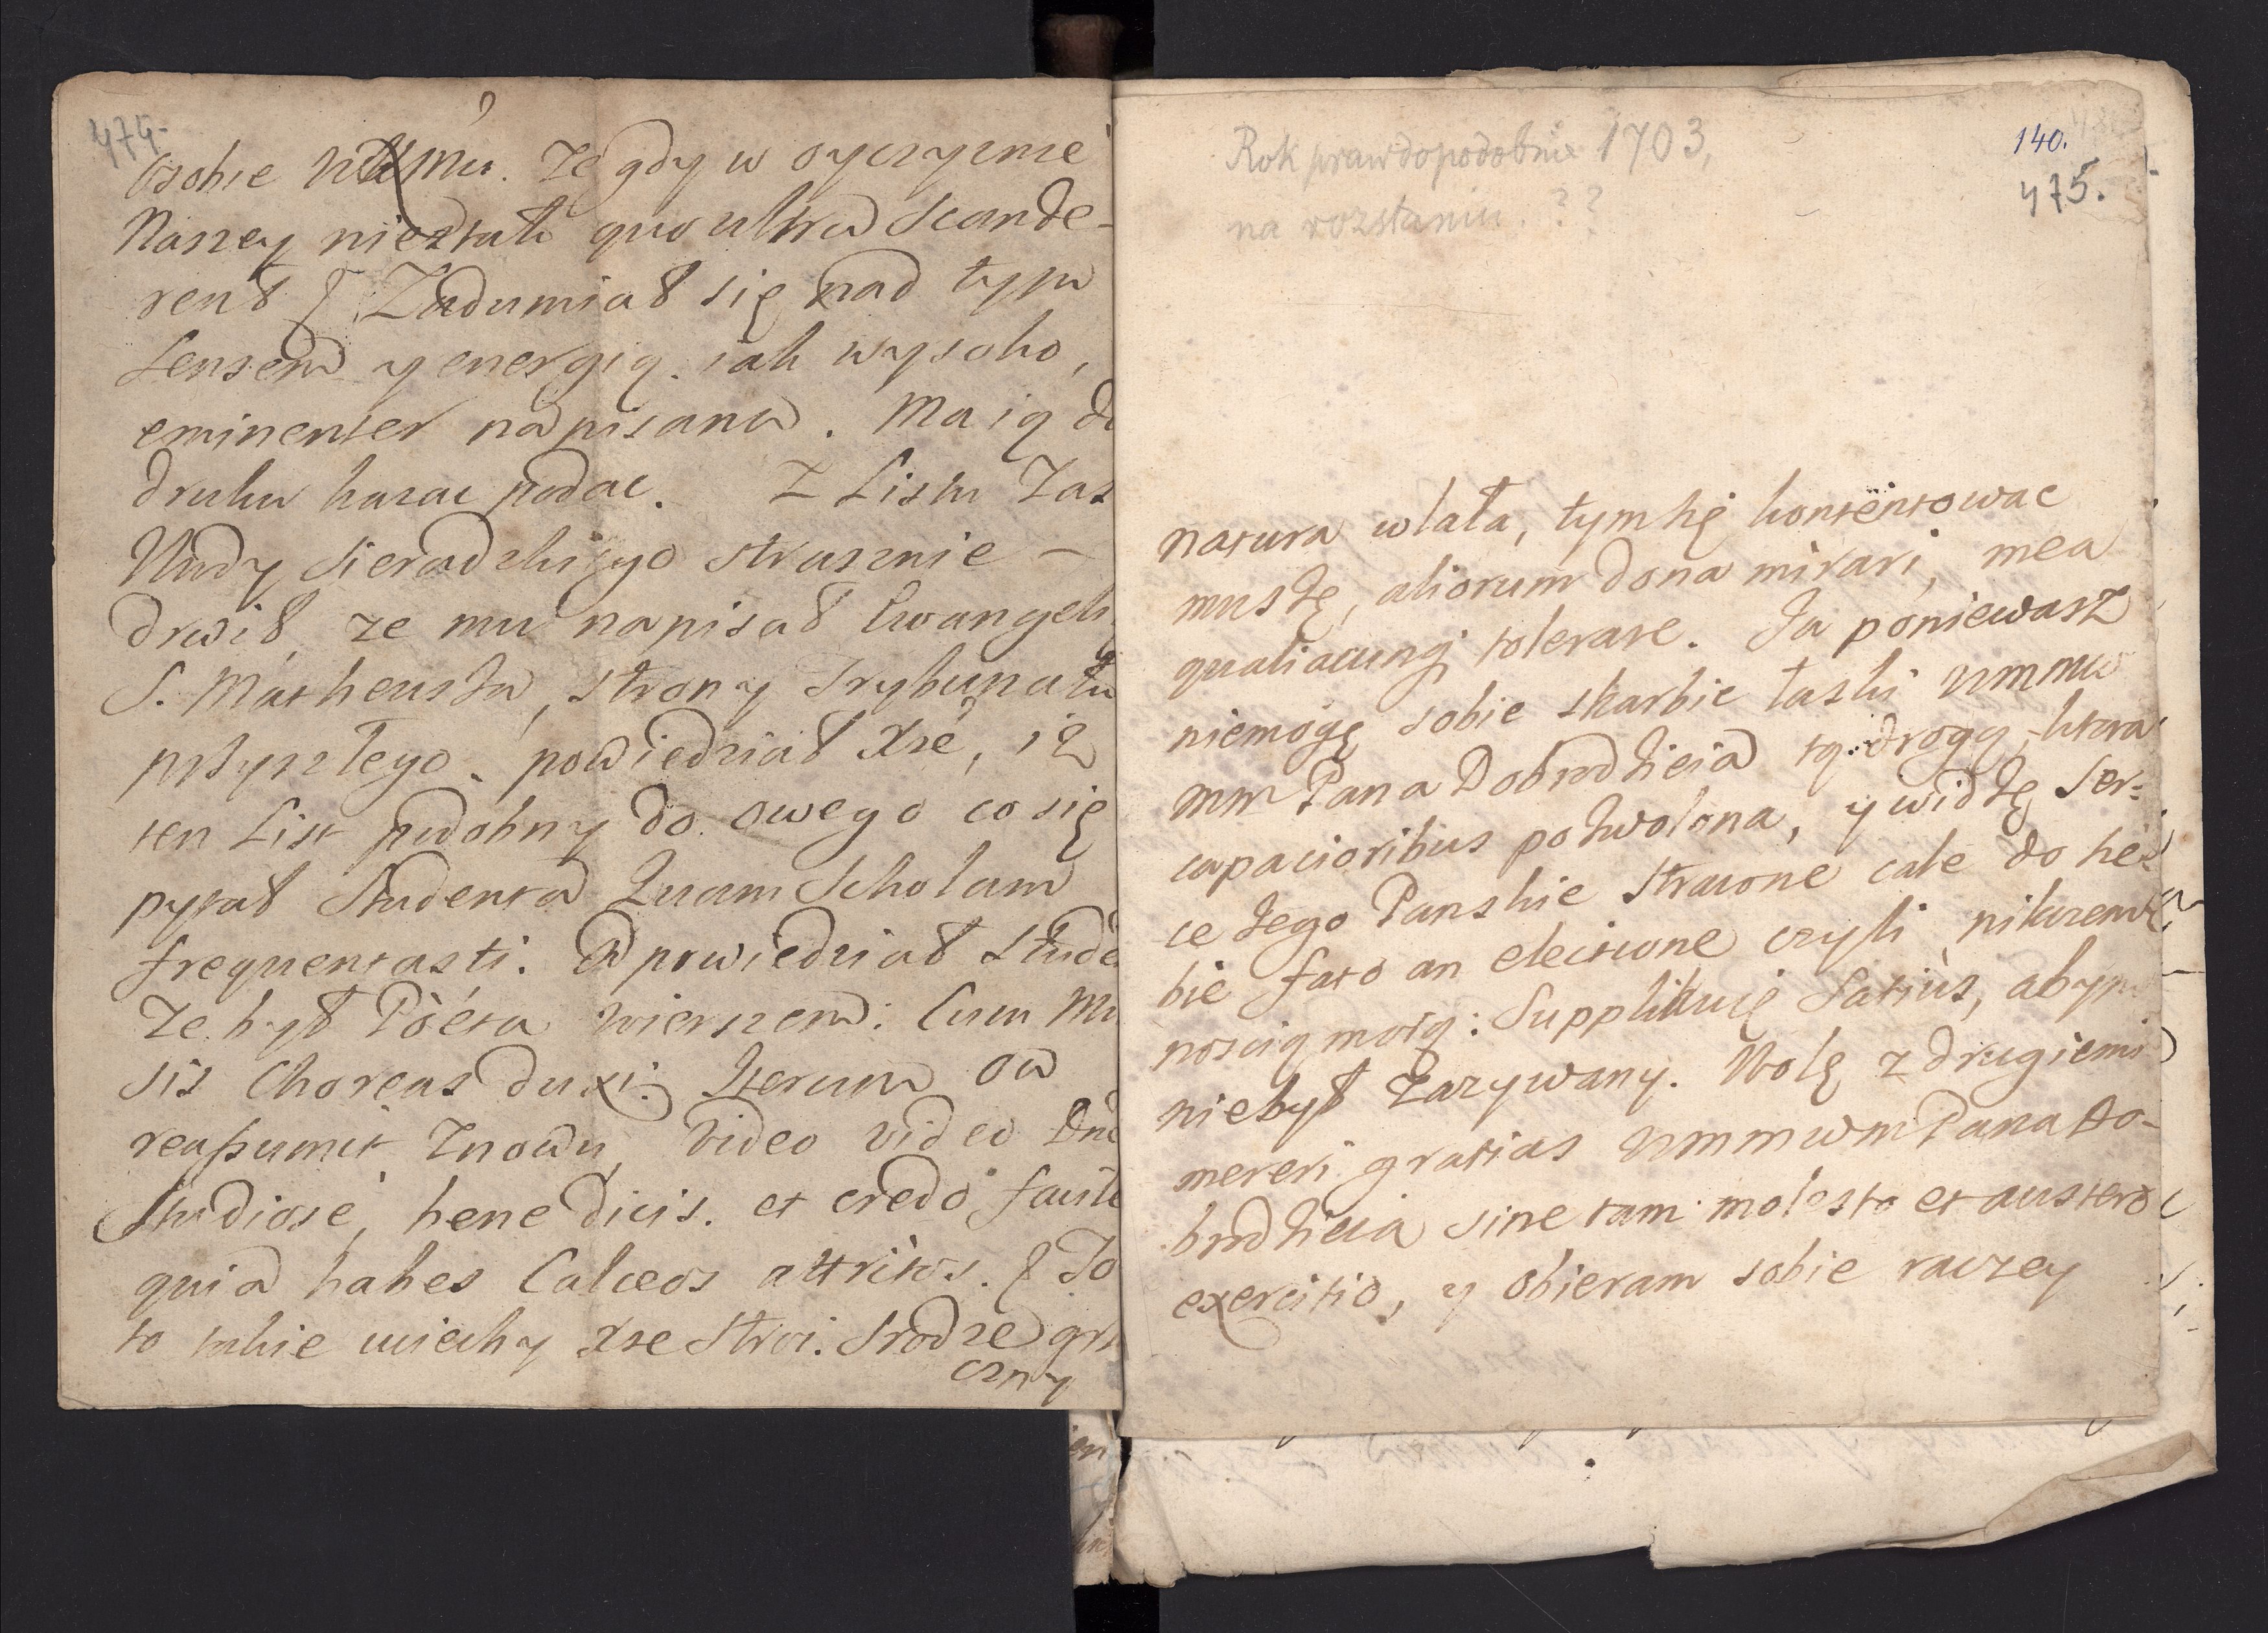 474.
Osobie Że gdy w oyczyznie
Naszey niestało quo ultra scande-
rent Zadumiał się nad tym
sensem y energią. iak wysoko,
eminenter napisana. Ma ią d
druku kazac podac. Z Listu Zas
Wdy Sieradzkiego strasznie –
drwił, ze mu napisał Ewangeli
S. Matheusza, strony Trybunału
przyszłego. powiedział Xże, iż
ten List podobny do owego co się
pytał Studenta Quam Scholam
frequentasti. Odpowiedział Stude
Ze był Pòéta wierszem: Cum Mu
sis Choreas duxi. Iterum on
reassumit Znowu, Video video Dne
Studiose, bene dicis. et credo facile
quia habes Calceos attritos. To
to takie uciechy Xże stroi. Srodze grz
czny
Rok prawdopodobnie 1703,
na rozstaniu. ??
140.
475.
natura wlała, tym się kontentowac
muszę, aliorum dona mirari, mea
qualiacunq tolerare. Ja poniewasz
niemogę sobie skarbic łaski
Pana Dobrodzieia tą drogą, ktora
capacioribus pozwolona, y widzę Ser-
ce Jego Panskie stracone cale do sie
bie fato an electione czyli nikczem
noscią moią: Supplikuię Satiùs, abym
niebył Zazywany. Wolę z drugiemi
mereri gratias Pana Do-
brodzieia sine tam molesto et austero
exercitio, y obieram sobie raczey